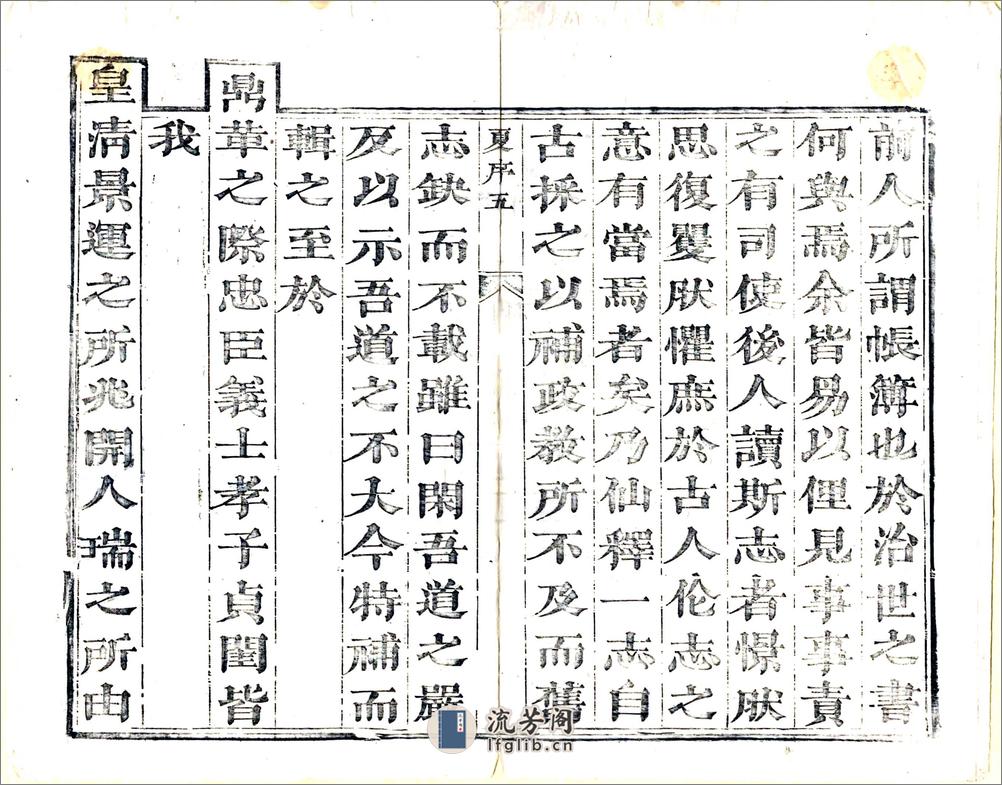 前人所謂帳簿也於治世之書
何與焉余皆易以俚見事事責
之有司使後人讀斯志者憬肰
思復矍肰懼庶於古人伦志之
意有當焉者矣乃仙釋一志自
古採之以補政教所不及而舊
夏序五
志鈌而不載雖曰閑吾道之嚴
及以示吾道之不大今特補而
輯之至於
鼎革之際忠臣義士孝子貞閨皆
我
皇清景運之所兆開人瑞之所由
流芳阁
lfglib.cn